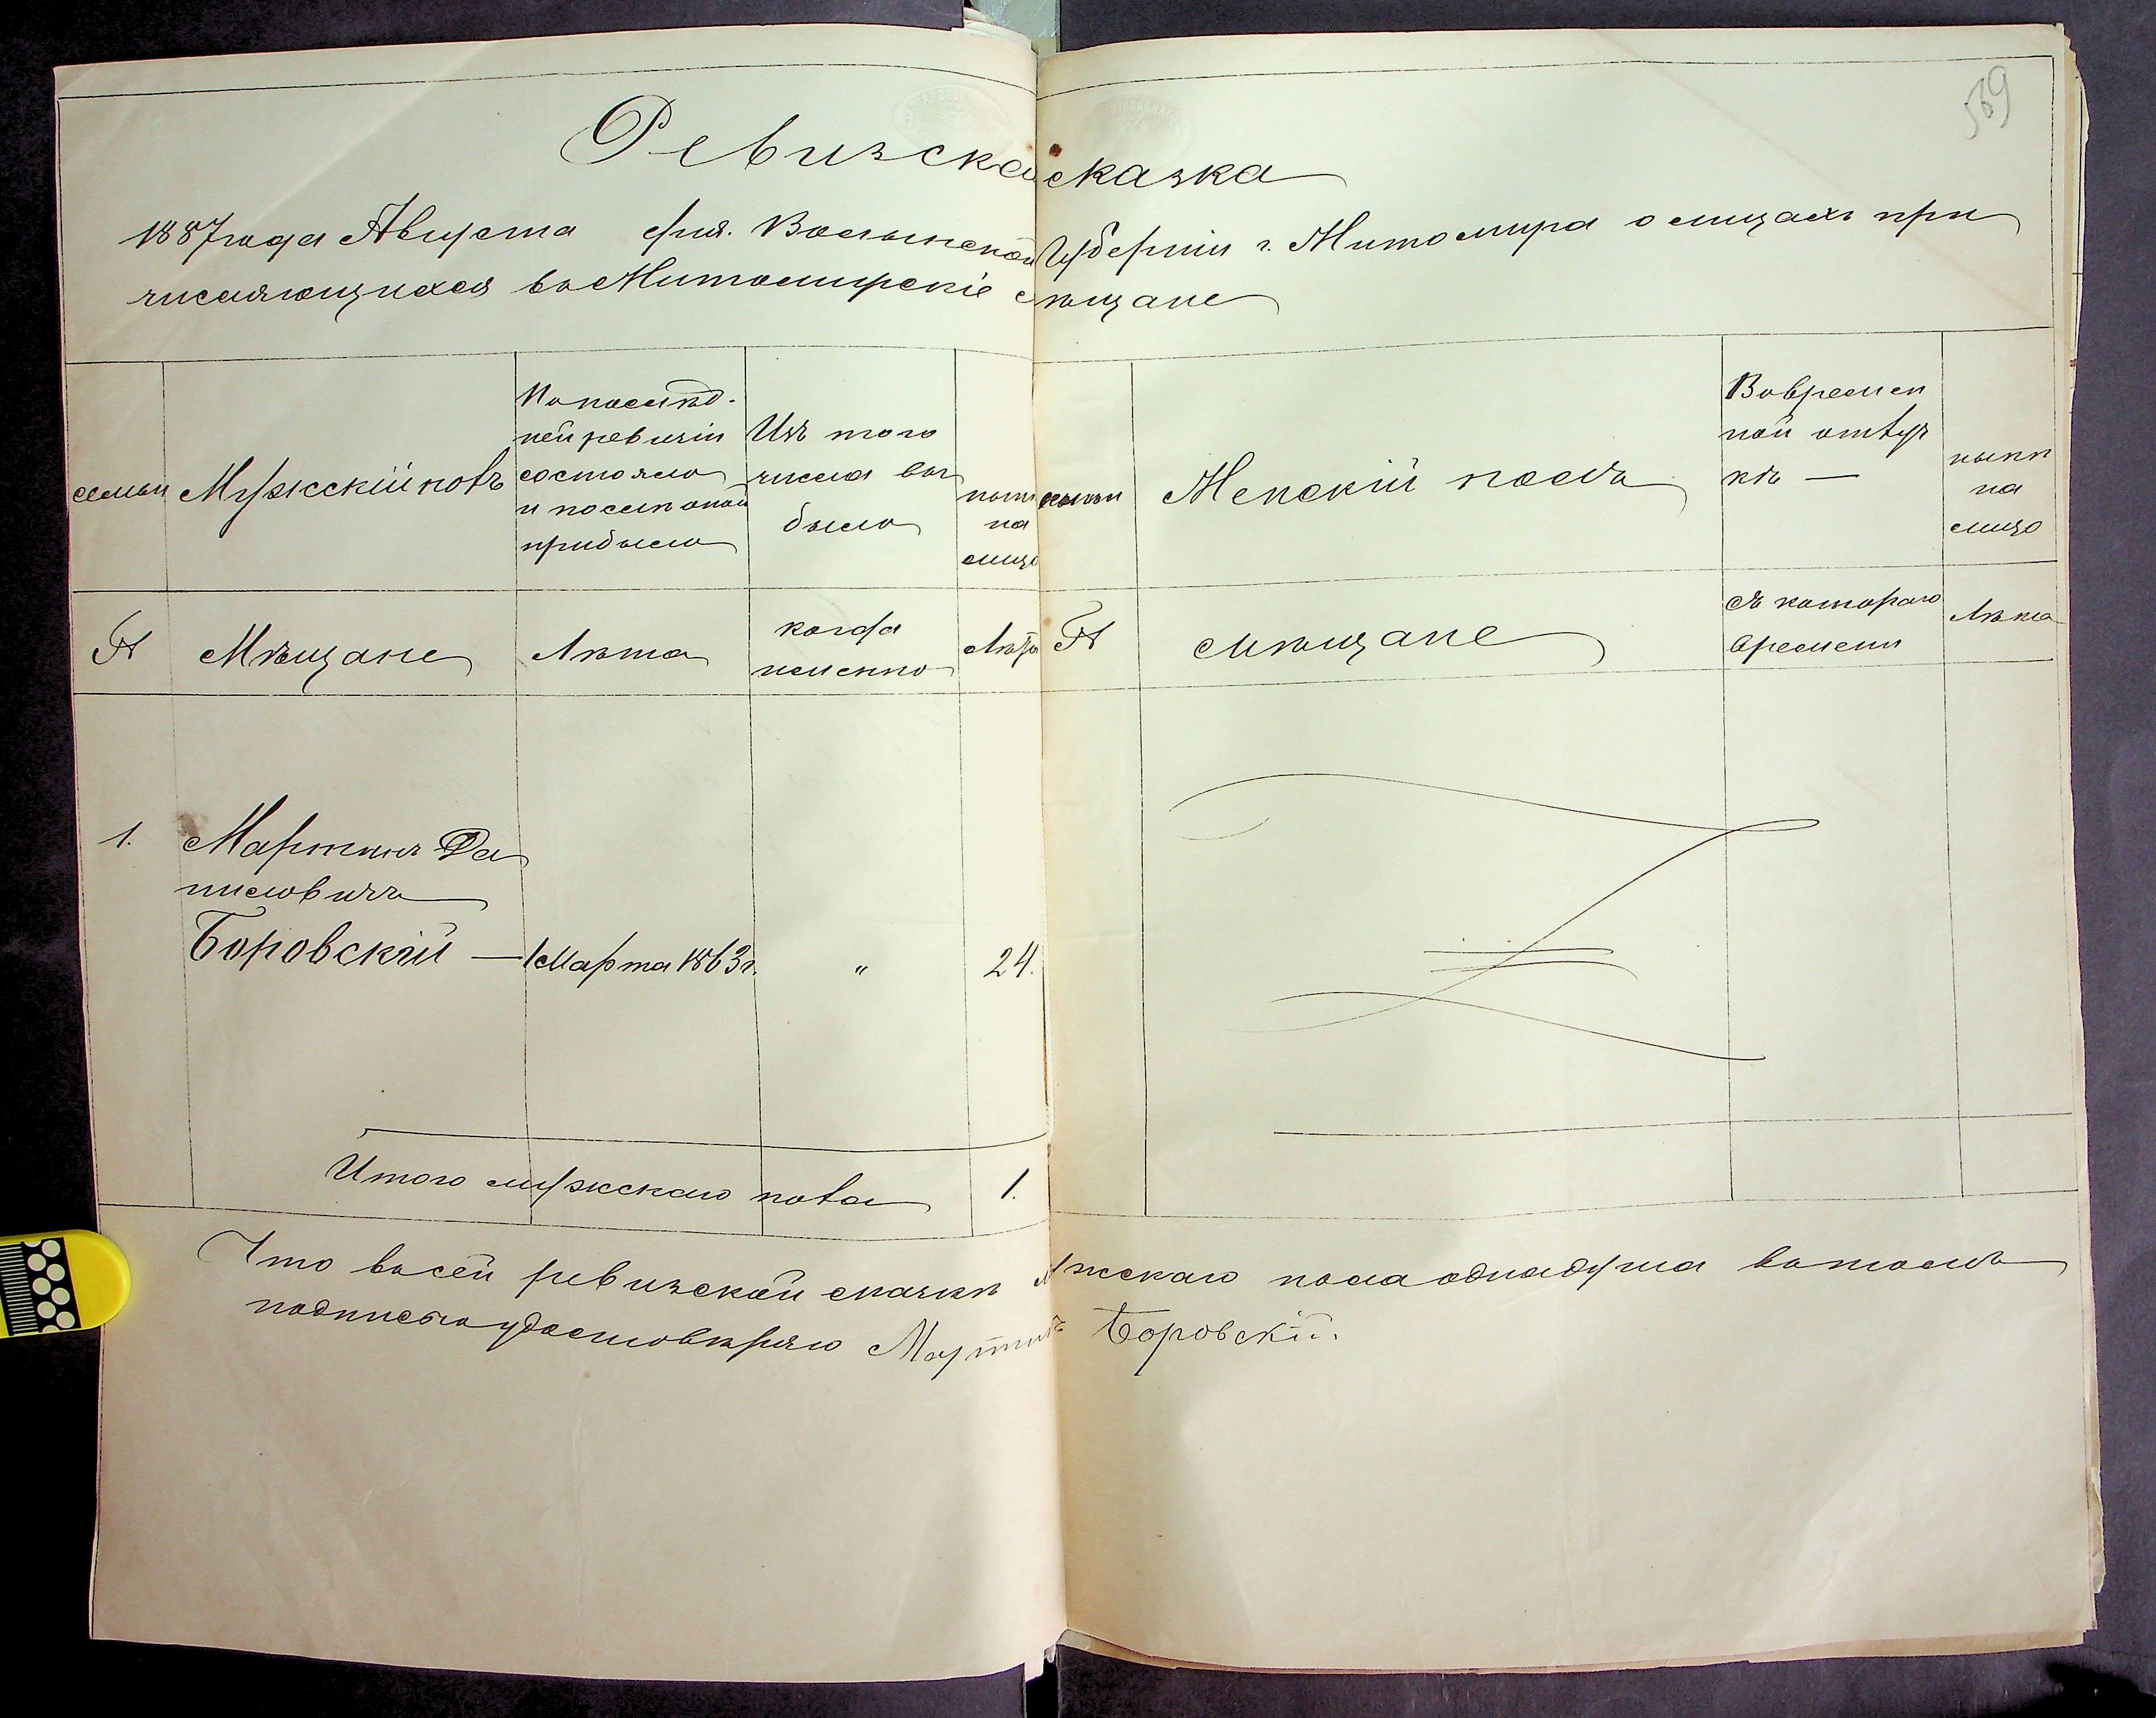 569
Ревизская сказка
1887 года Августа дня. Волынской Губерніи г. Житомира о лицахъ при
числяющихся въ Житомирскіе мѣщане
семьи
Мужескій полъ
По послѣд-
ней ревизіи
состояло
и послѣ оной
прибыло
Изъ того
числа вы
было
нынѣ
на
лицо
семьи
Женскій полъ
Во времен
ной отлуч
кѣ —
нынѣ
на
лицо
№
Мѣщане
Лѣта
когда
именно
Лѣта
№
мѣщане
Съ котораго
времени
Лѣта
1. Мартинъ Да
ниловичъ
Боровскій — 1 Марта 1863 г. " 24.
Итого мужескаго пола 1.
Что въ сей ревизской сказкѣ мужскаго пола одна душа въ томъ
подписью удостовѣряю Мартинъ Боровскій.